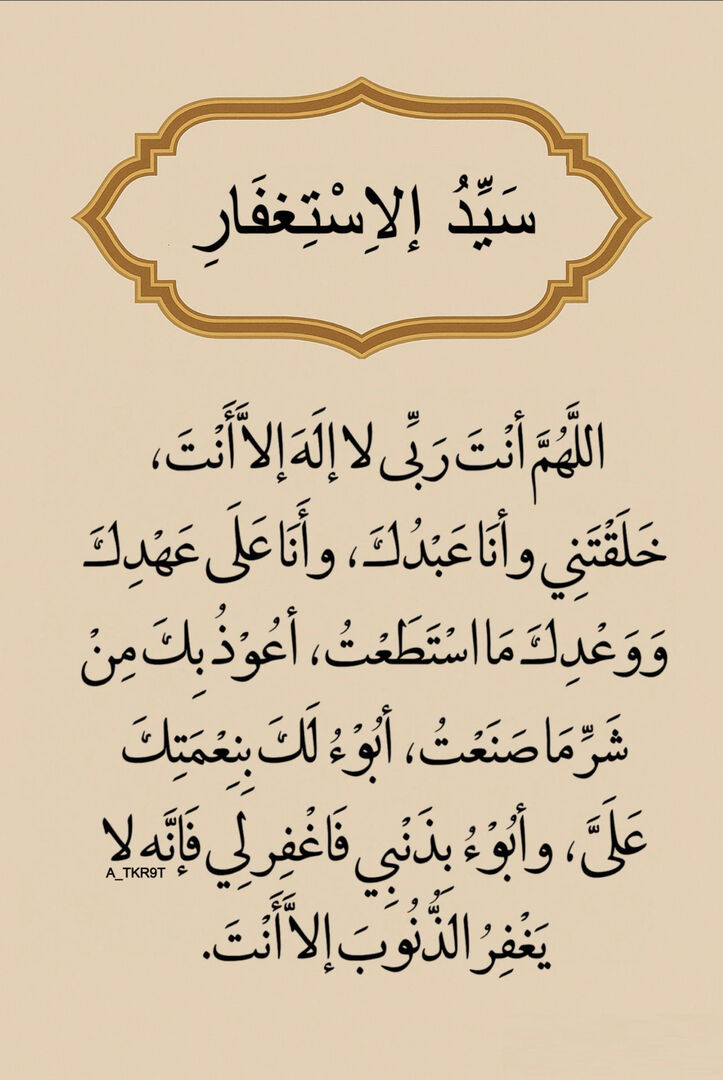 سَيِّدُ إلاِسْتِغفَارِ
اللَّهُمَّ أنْتَ رَبِّى لا إلَهَ إلاَّ أَنْتَ،
خَلَقْتَنِي وأنَا عَبْدُكَ، وأَنَا عَلَى عَهْدِكَ
وَوَعْدِكَ مَا اسْتَطَعْتُ، أعُوْذُ بِكَ مِنْ
شَرِّ مَا صَنَعْتُ، أبُوْءُ لَكَ بِنِعْمَتِكَ
عَلَىَّ، وأبُوْءُ بِذَنْبِي فَاغْفِر لِي فَإنَّه لا
A_TKR9T
يَغْفِرُ الذُّنُوبَ إلاَّ أَنْتَ.